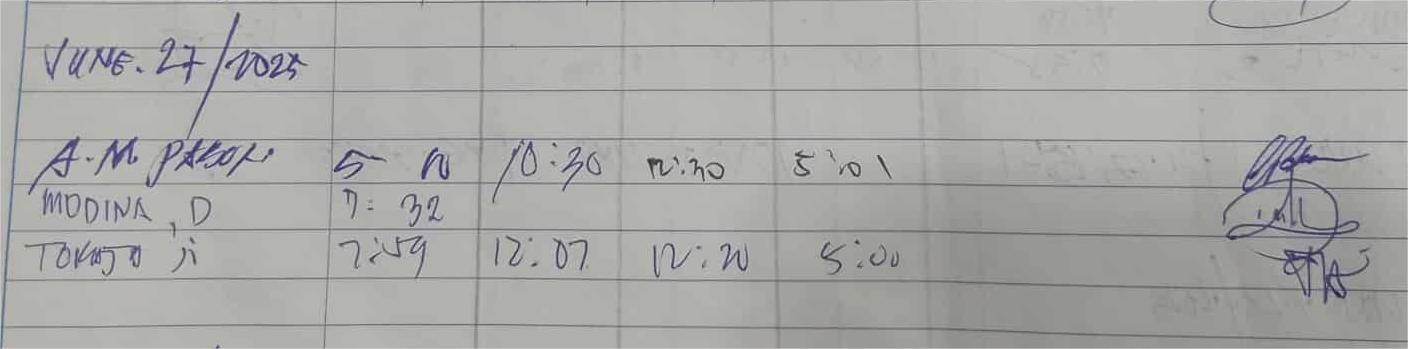 JUNE. 27/2025
A.M 5 10:30 12:30 5:01
MODINA, D 7:32
7:59 12:07 12:20 5:00